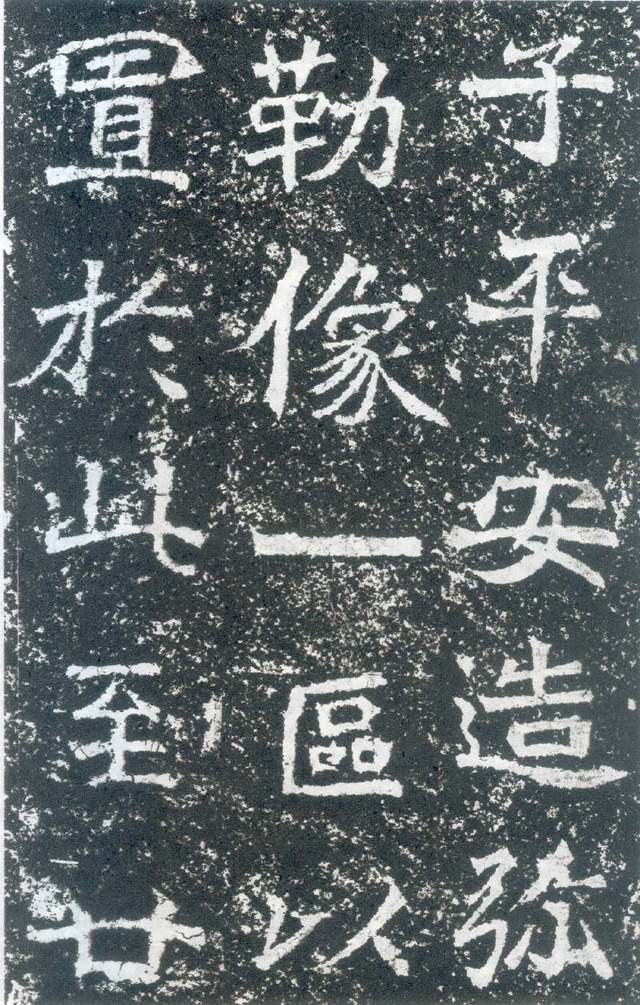 子平安造弥
勒像一區以
置於此至廿